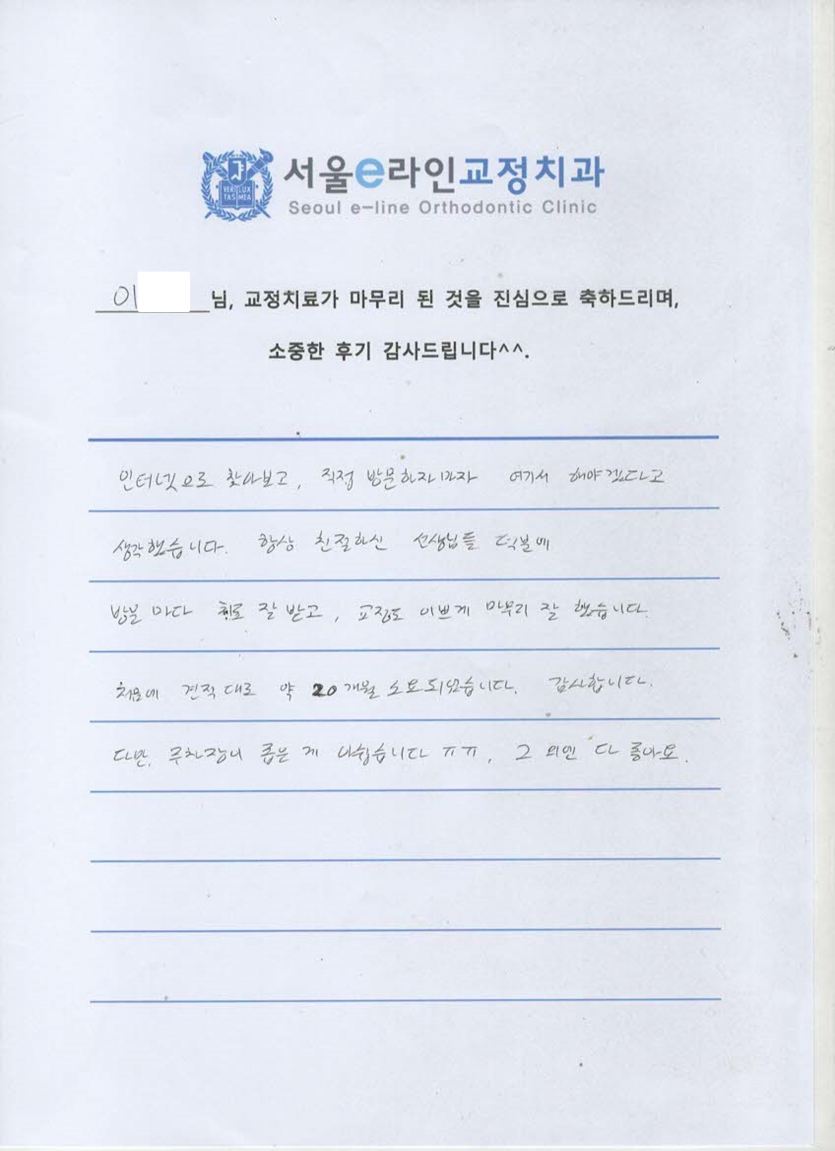 VERI LUX
TAS MEA
서울e라인교정치과
Seoul e-line Orthodontic Clinic
이 님, 교정치료가 마무리 된 것을 진심으로 축하드리며,
소중한 후기 감사드립니다^^.
인터넷으로 찾아보고, 직접 방문하자마자 여기서 해야겠다고
생각했습니다. 항상 친절하신 선생님들 덕분에
방문 마다 치료 잘 받고, 교정도 이쁘게 마무리 잘 했습니다.
처음에 견적대로 약 20개월 소요되었습니다. 감사합니다.
다만, 주차장이 좁은 게 아쉽습니다 ㅠㅠ, 그 외엔 다 좋아요.